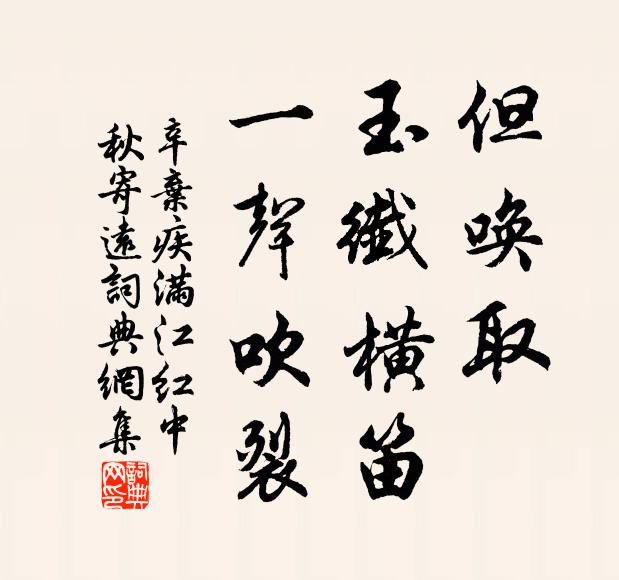 但唤取
玉纖橫笛
一聲吹裂
辛棄疾满江红中
秋寄遠詞典網集
詞典
网印